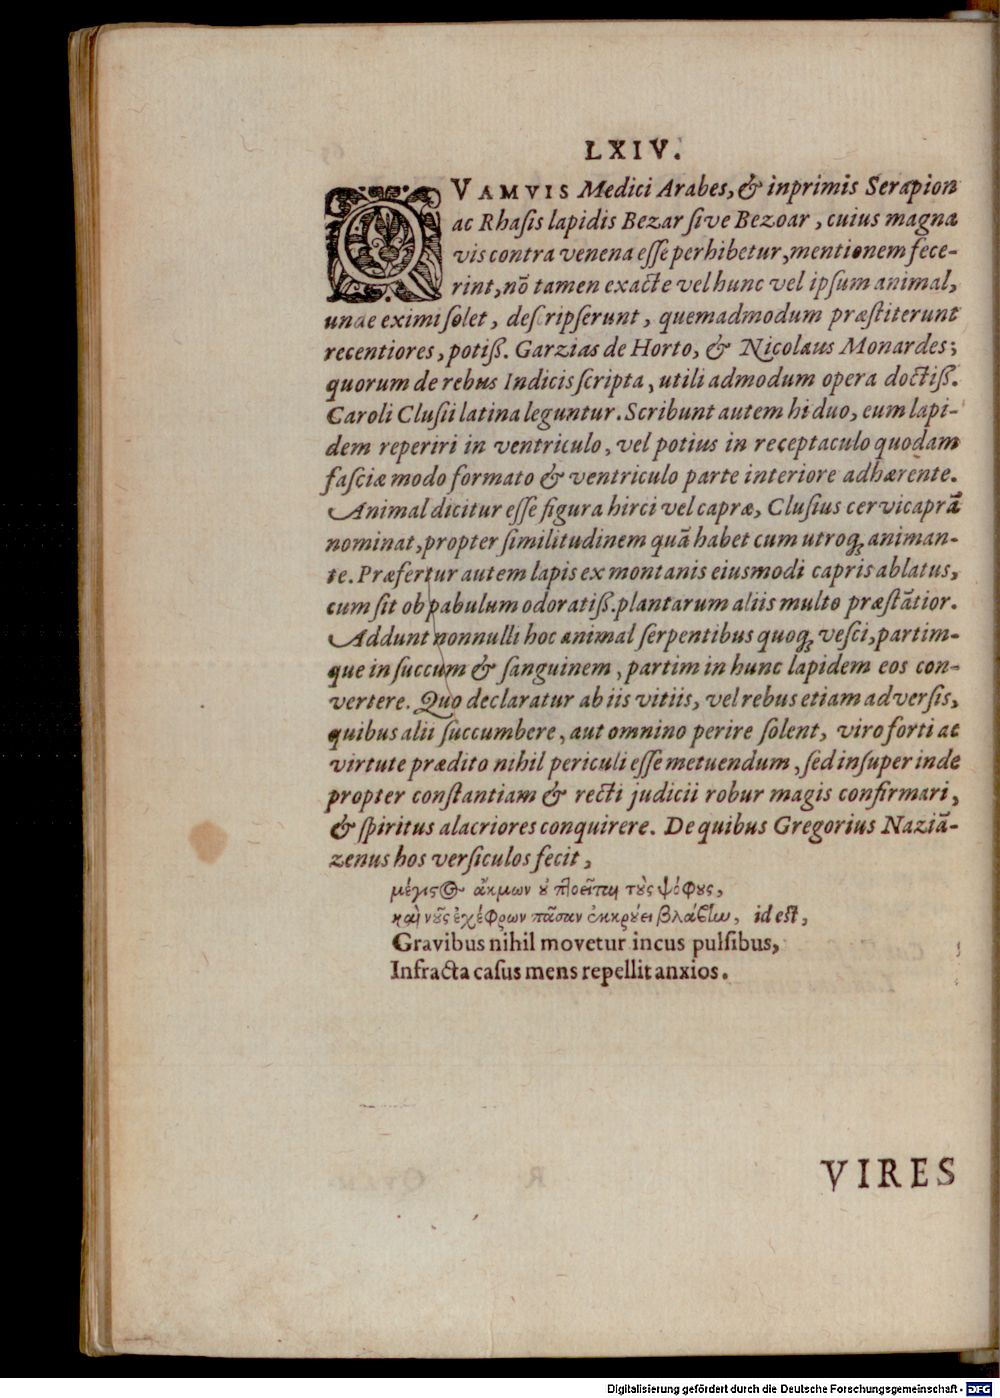 LXIV.
QVAMVIS Medici Arabes, & inprimis Serapion
ac Rhasis lapidis Bezar sive Bezoar, cuius magna
vis contra venena esse perhibetur, mentionem fece-
rint, nō tamen exacte vel hunc vel ipsum animal,
unde eximi solet, descripserunt, quemadmodum præstiterunt
recentiores, potiß. Garzias de Horto, & Nicolaus Monardes;
quorum de rebus Indicis scripta, utili admodum opera doctiß.
Caroli Clusii latina leguntur. Scribunt autem hi duo, eum lapi-
dem reperiri in ventriculo, vel potius in receptaculo quodam
fasciæ modo formato & ventriculo parte interiore adhærente.
Animal dicitur esse figura hirci vel capræ, Clusius cervicaprā
nominat, propter similitudinem quā habet cum utroq; animan-
te. Præfertur autem lapis ex montanis eiusmodi capris ablatus,
cum sit ob pabulum odoratiß. plantarum aliis multo præstātior.
Addunt nonnulli hoc animal serpentibus quoq; vesci, partim-
que in succum & sanguinem, partim in hunc lapidem eos con-
vertere. Quo declaratur ab iis vitiis, vel rebus etiam adversis,
quibus alii succumbere, aut omnino perire solent, viro forti ac
virtute prædito nihil periculi esse metuendum, sed insuper inde
propter constantiam & recti judicii robur magis confirmari,
& spiritus alacriores conquirere. De quibus Gregorius Naziā-
zenus hos versiculos fecit,
μέγιστος ἄκμων οὐ πτοεῖται τοὺς ψόφους,
καὶ νοῦς ἐχέφρων πᾶσαν ἐκκρούει βλάβην, id est,
Gravibus nihil movetur incus pulsibus,
Infracta casus mens repellit anxios.
VIRES
Digitalisierung gefördert durch die Deutsche Forschungsgemeinschaft - DFG